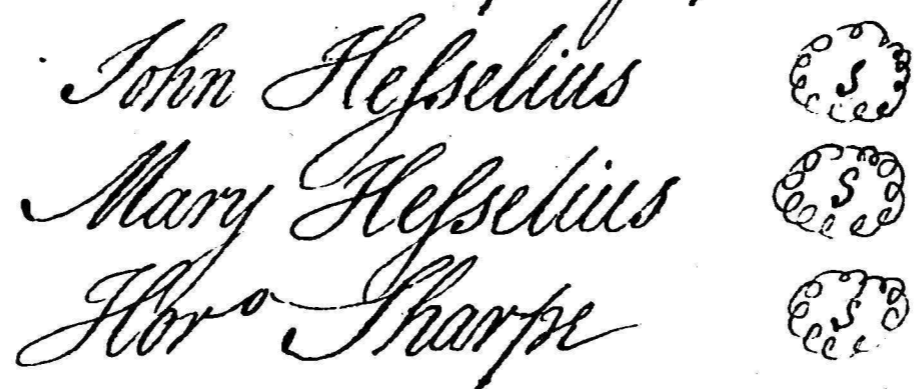 John Heſselius S
Mary Heſselius S
Horº Sharpe S